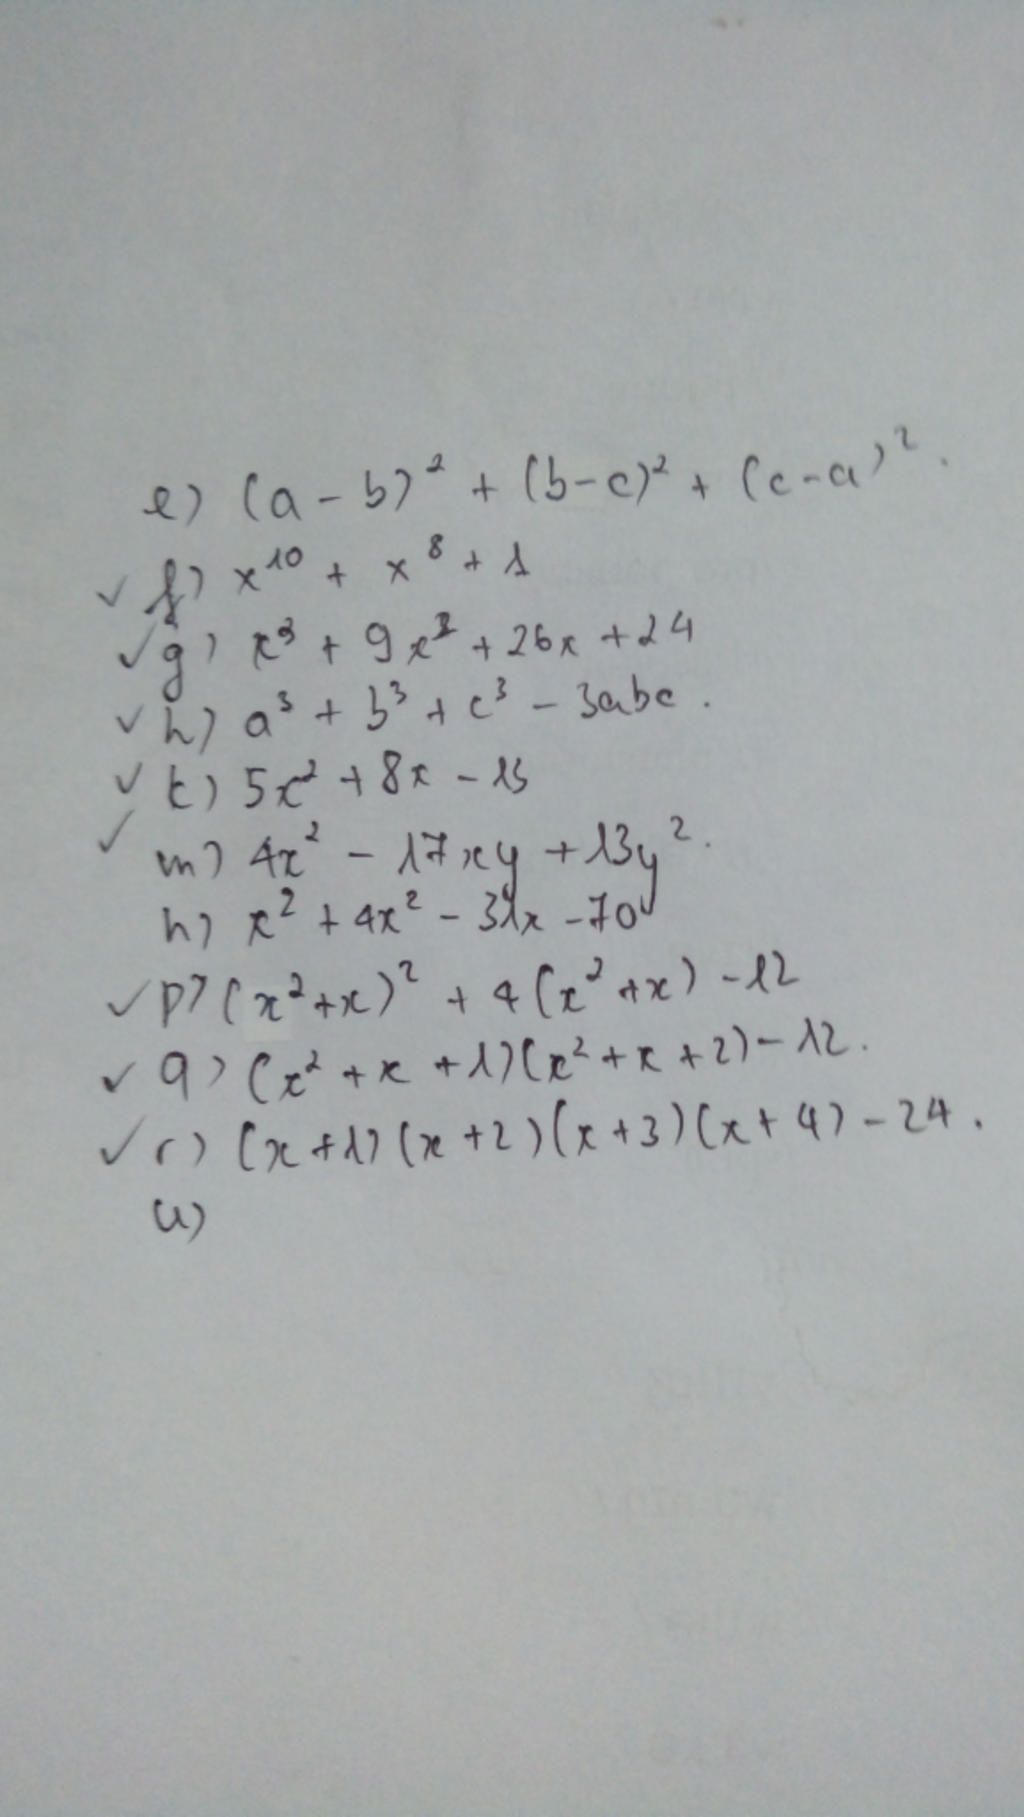 e) (a - b)² + (b-c)² + (c-a)².
✓ f) x¹⁰ + x⁸ + 1
✓ g) x³ + 9x² + 26x + 24
✓ h) a³ + b³ + c³ - 3abc.
✓ t) 5x² + 8x - 13
✓ m) 4x² - 17xy + 13y².
n) x² + 4x² - 31x - 70
✓ p) (x²+x)² + 4(x²+x) - 12
✓ q) (x² + x + 1)(x² + x + 2) - 12.
✓ r) (x+1)(x+2)(x+3)(x+4) - 24.
u)